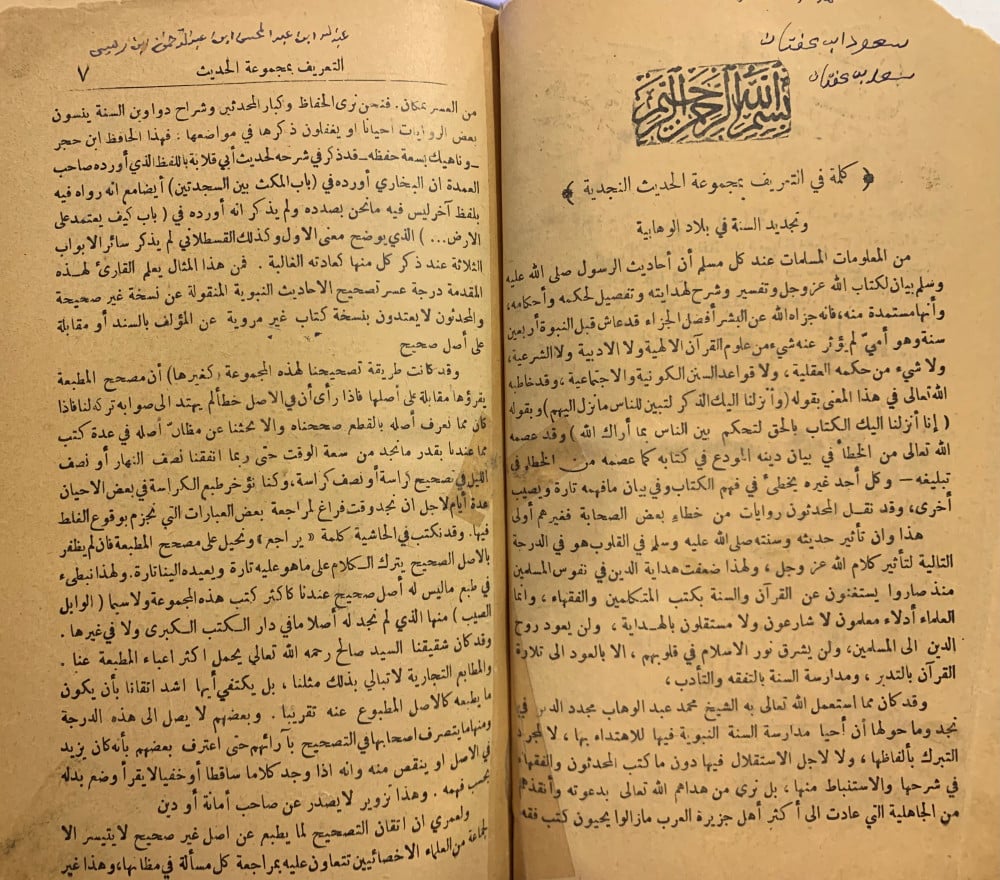 سعود ابن عفتان
سعد بن عفتان
بسم الله الرحمن الرحيم
﴿ كلمة في التعريف بمجموعة الحديث النجدية ﴾
وتجديد السنة في بلاد الوهابية
من المعلومات المسلمات عند كل مسلم أن أحاديث الرسول صلى الله عليه
وسلم بيان لكتاب الله عز وجل وتفسير وشرح لهدايته وتفصيل لحكمه وأحكامه،
وأنها مستمدة منه، فانه جزاه الله عن البشر أفضل الجزاء قد عاش قبل النبوة أربعين
سنة وهو أميّ لم يؤثر عنه شيء من علوم القرآن الالهية ولا الادبية ولا الشرعية،
ولا شيء من حكمه العقلية، ولا قواعد السنن الكونية والاجتماعية، وقد خاطبه
الله تعالى في هذا المعنى بقوله (وأنزلنا اليك الذكر لتبين للناس ما نزل اليهم) وبقوله
( إنا أنزلنا اليك الكتاب بالحق لتحكم بين الناس بما أراك الله ) وقد عصمه
الله تعالى من الخطأ في بيان دينه المودع في كتابه كما عصمه من الخطإ في
تبليغه — وكل أحد غيره يخطئ في فهم الكتاب وفي بيان ما فهمه تارة ويصيب
أخرى، وقد نقل المحدثون روايات من خطإ بعض الصحابة فغيرهم أولى
هذا وان تأثير حديثه وسنته صلى الله عليه وسلم في القلوب هو في الدرجة
التالية لتأثير كلام الله عز وجل، ولهذا ضعفت هداية الدين في نفوس المسلمين
منذ صاروا يستغنون عن القرآن والسنة بكتب المتكلمين والفقهاء، وانما
العلماء أدلاء معلمون لا شارعون ولا مستقلون بالهداية، ولن يعود روح
الدين الى المسلمين، ولن يشرق نور الاسلام في قلوبهم، الا بالعود الى تلاوة
القرآن بالتدبر، ومدارسة السنة بالتفقه والتأدب،
وقد كان مما استعمل الله تعالى به الشيخ محمد عبد الوهاب مجدد الدين في
نجد وما حولها أن أحيا مدارسة السنة النبوية فيها للاهتداء بها، لا لمجرد
التبرك بألفاظها، ولا لاجل الاستقلال فيها دون ما كتب المحدثون والفقهاء
في شرحها والاستنباط منها، بل نرى من هداهم الله تعالى بدعوته وأنقذهم
من الجاهلية التي عادت الى أكثر أهل جزيرة العرب مازالوا يحيون كتب فقه
عبدالله ابن عبد المحسن ابن عبدالرحمن ابن
التعريف بمجموعة الحديث
٧
من العسر بمكان. فنحن نرى الحفاظ وكبار المحدثين وشراح دواوين السنة ينسون
بعض الروايات أحيانا او يغفلون ذكرها في مواضعها: فهذا الحافظ ابن حجر
_وناهيك بسعة حفظه_ قد ذكر في شرحه لحديث أبي قلابة باللفظ الذي أورده صاحب
العمدة ان البخاري أورده في (باب المكث بين السجدتين) أيضا مع انه رواه فيه
بلفظ آخر ليس فيه ما نحن بصدده ولم يذكر انه أورده في ( باب كيف يعتمد على
الارض... ) الذي يوضح معنى الاول وكذلك القسطلاني لم يذكر سائر الابواب
الثلاثة عند ذكر كل منها كعادته الغالبة. فمن هذا المثال يعلم القارئ لهذه
المقدمة درجة عسر تصحيح الاحاديث النبوية المنقولة عن نسخة غير صحيحة
والمحدثون لا يعتدون بنسخة كتاب غير مروية عن المؤلف بالسند أو مقابلة
على أصل صحيح
وقد كانت طريقة تصحيحنا لهذه المجموعة (كغيرها) أن مصحح المطبعة
يقرؤها مقابلة على أصلها فاذا رأى أن في الاصل خطأ لم يهتد الى صوابه تركه لنا فاذا
كان مما نعرف أصله بالقطع صححناه والا بحثنا عن مظانّ أصله في عدة كتب
مما عندنا بقدر ما نجد من سعة الوقت حتى ربما انفقنا نصف النهار أو نصف
الليل في تصحيح كراسة أو نصف كراسة، وكنا نؤخر طبع الكراسة في بعض الاحيان
عدة أيام لاجل ان نجد وقت فراغ لمراجعة بعض العبارات التي نجزم بوقوع الغلط
فيها. وقد نكتب في الحاشية كلمة « يراجع» ونحيل على مصحح المطبعة فان لم يظفر
بالاصل الصحيح يترك الكلام على ما هو عليه تارة ويعيده الينا تارة. ولهذا نبطىء
في طبع ما ليس له أصل صحيح عندنا كاكثر كتب هذه المجموعة ولا سيما ( الوابل
الصيب ) منها الذي لم نجد له أصلا ما في دار الكتب الكبرى ولا في غيرها.
وقد كان شقيقنا السيد صالح رحمه الله تعالى يحمل اكثر اعباء المطبعة عنا.
والمطابع التجارية لا تبالي بذلك مثلنا، بل يكتفي أيها اشد اتقانا بأن يكون
ما يطبعه كالاصل المطبوع عنه تقريبا. وبعضهم لا يصل الى هذه الدرجة
ومنها ما يتصرف اصحابها في التصحيح بآرائهم حتى اعترف بعضهم بأنه كان يزيد
في الاصل او ينقص منه وانه اذا وجد كلاما ساقطا أو خفيا لا يقرأ وضع بدله
بحسب فهمه. وهذا تزوير لا يصدر عن صاحب أمانة أو دين
ولعمري ان اتقان التصحيح لما يطبع عن اصل غير صحيح لا يتيسر الا
لجماعة من العلماء الاخصائيين تتعاون عليه بمراجعة كل مسألة في مظانها، وهذا غير